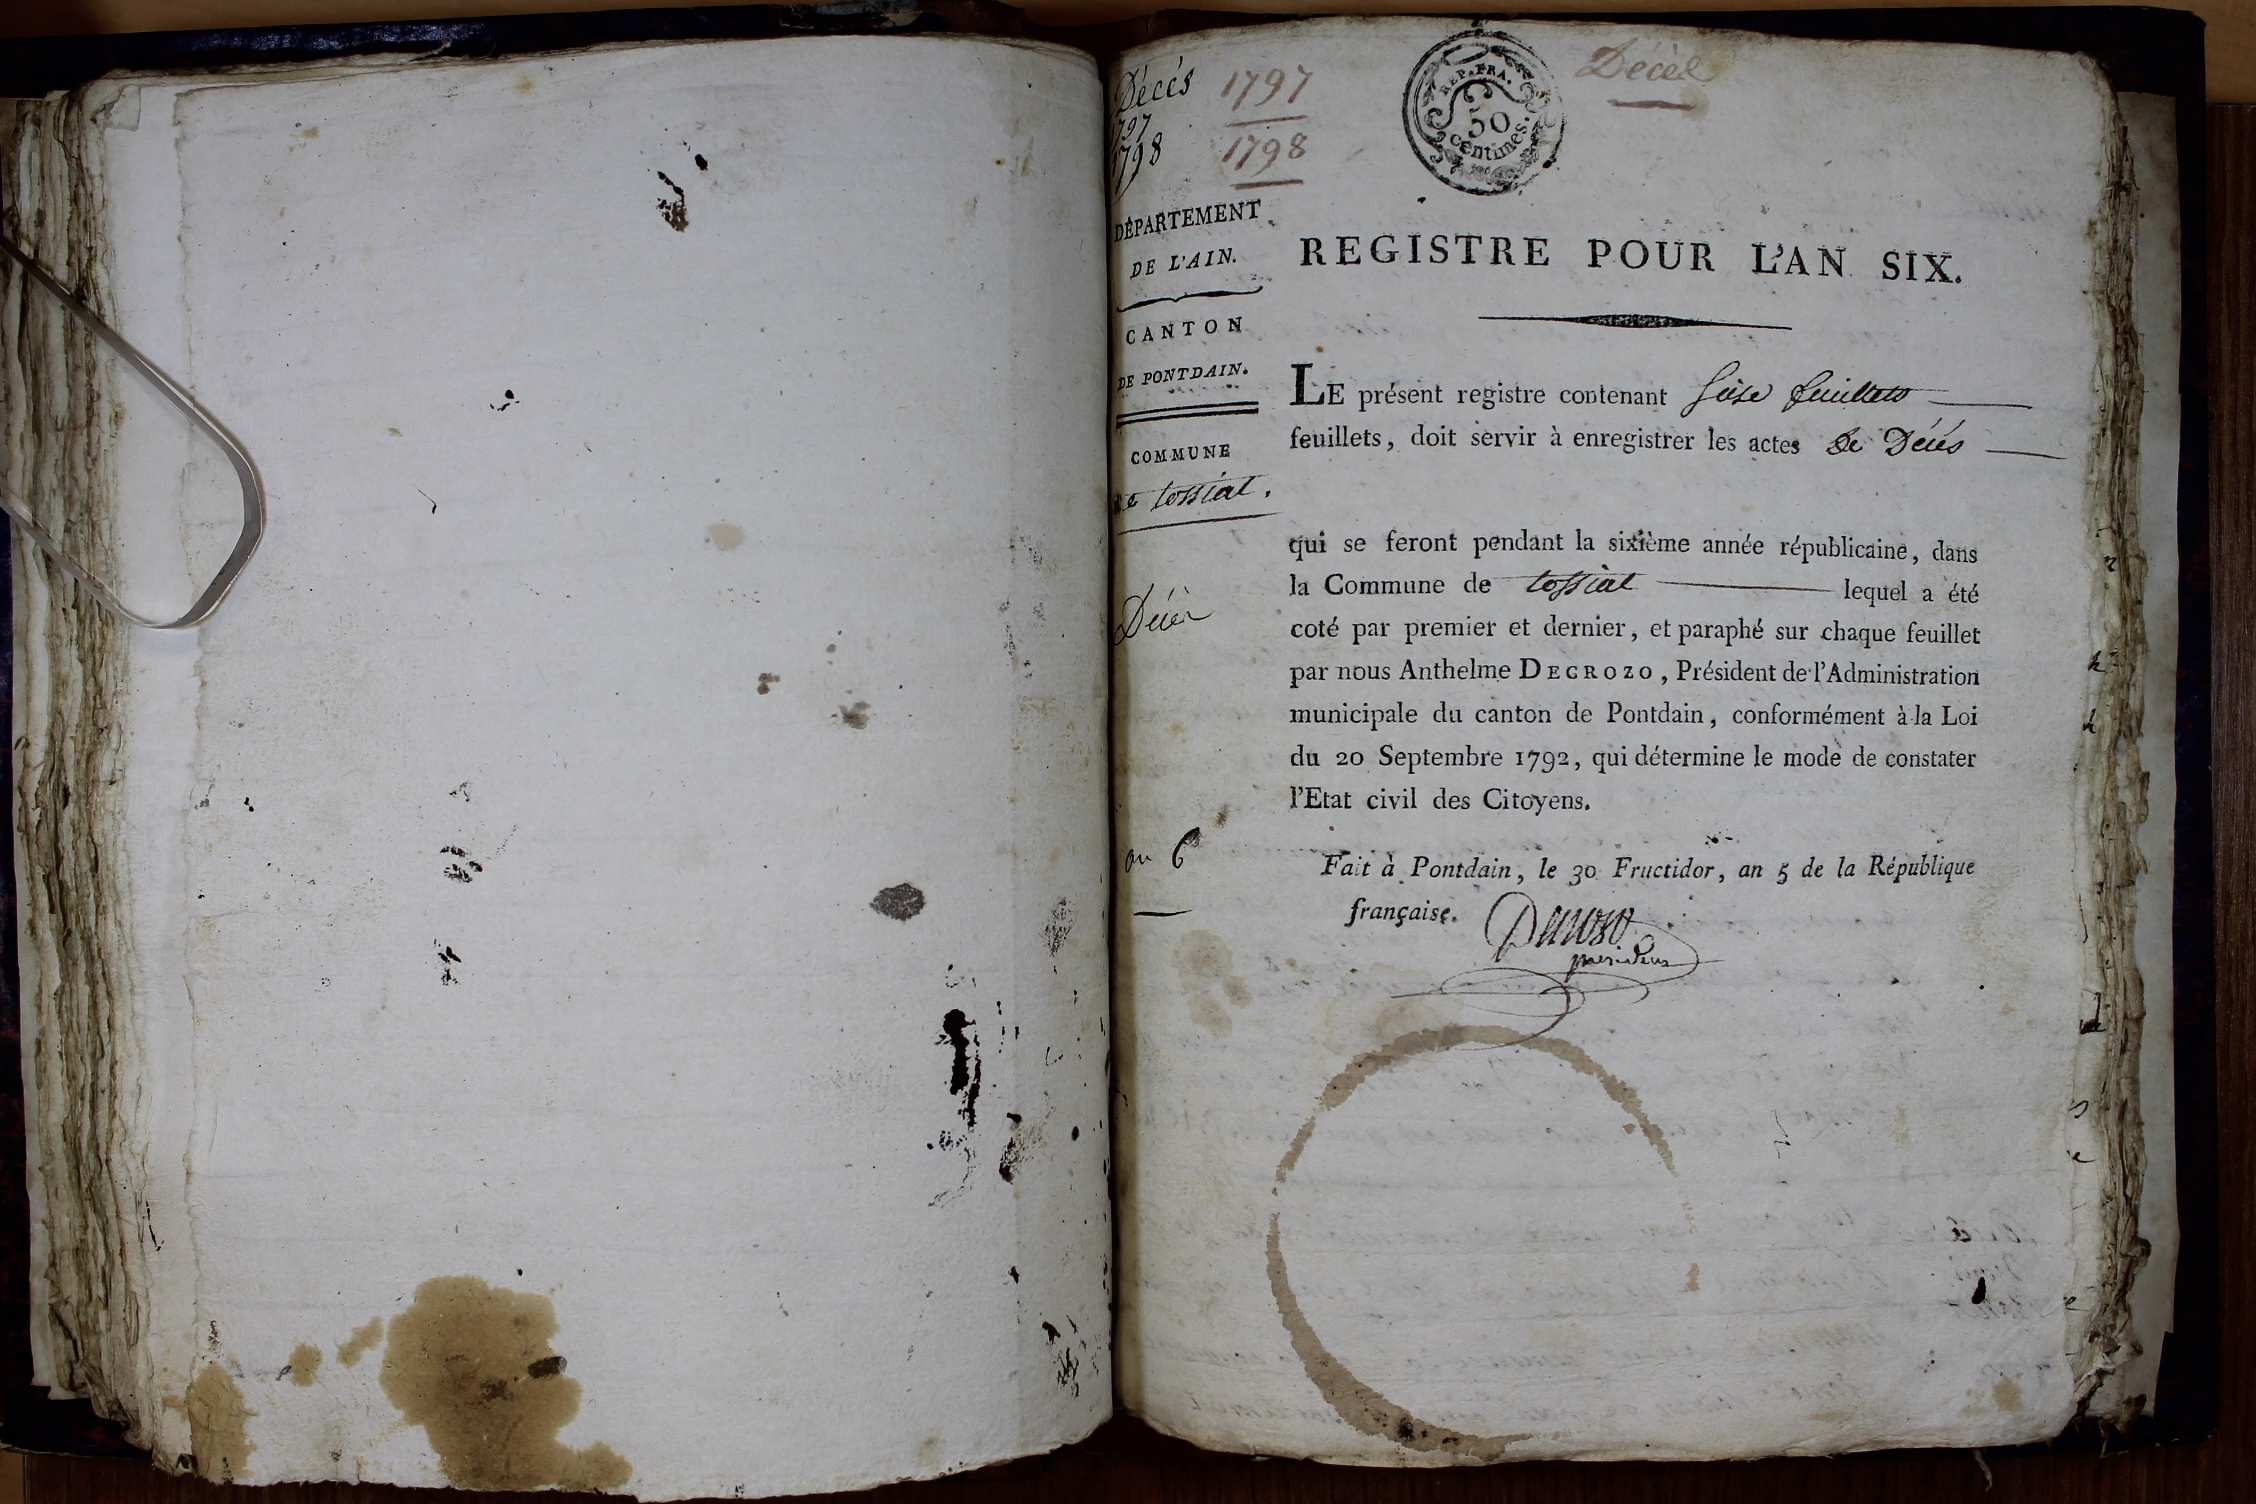 Décés
1797
1798
1797
1798
REP. FRA.
50
centimes.
Décès
DÉPARTEMENT
DE L'AIN.
CANTON
DE PONTDAIN.
COMMUNE
de tossiat.
Décès
an 6
REGISTRE POUR L'AN SIX.
LE présent registre contenant seise feuillets
feuillets, doit servir à enregistrer les actes de Décés
qui se feront pendant la sixième année républicaine, dans
la Commune de tossiat lequel a été
coté par premier et dernier, et paraphé sur chaque feuillet
par nous Anthelme DECROZO, Président de l'Administration
municipale du canton de Pontdain, conformément à la Loi
du 20 Septembre 1792, qui détermine le mode de constater
l'Etat civil des Citoyens.
Fait à Pontdain, le 30 Fructidor, an 5 de la République
française.
Decroso
président